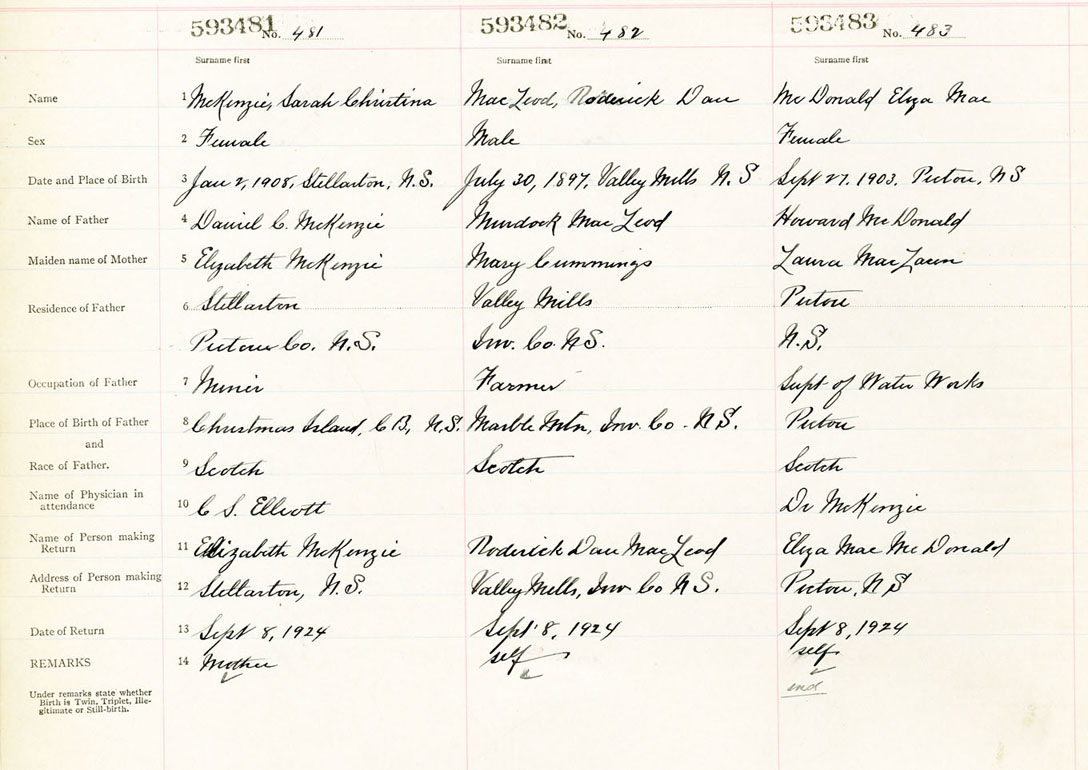 593481 No. 481 593482 No. 482 593483 No. 483
Surname first Surname first Surname first
Name 1 McKenzie, Sarah Christina MacLeod, Roderick Dan McDonald Eliza Mae
Sex 2 Female Male Female
Date and Place of Birth 3 Jan 2, 1908, Stellarton, N.S. July 30, 1897, Valley Mills N S Sept 27. 1903. Pictou, NS
Name of Father 4 Daniel C. McKenzie Murdock MacLeod Howard McDonald
Maiden name of Mother 5 Elizabeth McKenzie Mary Cummings Laura MacLaren
Residence of Father 6 Stellarton Valley Mills Pictou
Pictou Co. N.S. Inv. Co. N S. N.S.
Occupation of Father 7 Miner Farmer Supt of Water Works
Place of Birth of Father 8 Christmas Island, C B, N.S. Marble Mtn, Inv. Co. N S. Pictou
and
Race of Father. 9 Scotch Scotch Scotch
Name of Physician in
attendance 10 C S. Elliott Dr McKenzie
Name of Person making
Return 11 Elizabeth McKenzie Roderick Dan MacLeod Eliza Mae McDonald
Address of Person making
Return 12 Stellarton, N.S. Valley Mills, Inv. Co N S. Pictou, N S
Date of Return 13 Sept 8, 1924 Sept 8, 1924 Sept 8, 1924
REMARKS 14 Mother self self
Under remarks state whether
Birth is Twin, Triplet, Ille-
gitimate or Still-birth.
end